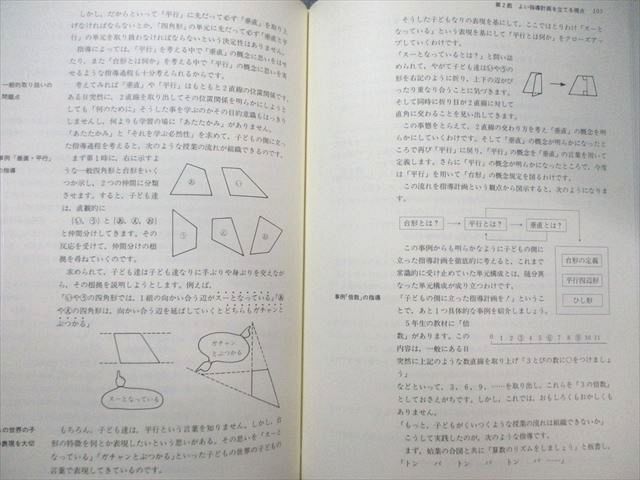 しかし，だからといって「平行」に先だって必ず「垂直」を取り上
げなければならないとか，「四角形」の単元に先だって必ず「平行」
の単元を取り扱わなければならないという決定性はありません。
指導によっては，「平行」を考える中で「垂直」の概念に思いをはせ
たり，また「台形とは何か」を考える中で「平行」の概念に思いを寄
せるような指導過程も十分考えられるからです。
一般的取り扱いの
問題点
考えてみれば「垂直」や「平行」はもともと2直線の位置関係です。
ある日突然に，2直線を取り出してその位置関係を明らかにしようと
しても「何のために」そうした事を学ぶのかその目的意識もはっきり
しませんし，何よりも学習の場に「あたたかみ」がありません。
「あたたかみ」と「それを学ぶ必然性」を求めて，子どもの側に立っ
た指導過程を考えると，次のような授業の流れが組織できるのです。
事例「垂直・平行」
の指導
まず第1時に，右に示すよ
うな一般四角形と台形をいく
つか示し，2つの仲間に分類
させます。すると，子ども達
は，直観的に
{い，う}と{あ，え，お}
と仲間分けしてきます。その
反応を受けて，仲間分けの根
拠を尋ねていくのです。
あ
い
う
え
お
求められて，子ども達は子ども達なりに手ぶりや身ぶりを交えなが
ら，その根拠を説明しようとします。例えば，
「いやうの四角形では，1組の向かい合う辺がスーとなっている」「あ
やえの四角形は，向かい合う辺を延ばしていくとどちらもガチャンと
ぶつかる」
スーとなっている
ガチャン
とぶつかる
の世界の子
の表現を大切
もちろん，子ども達は，平行という言葉を知りません。しかし，台
形の特徴を何とか表現したいという思いがある。その思いを「スーと
なっている」「ガチャンとぶつかる」といった子どもの世界の子どもの
言葉で表現してきているのです。
第2節 よい指導計画を立てる視点 107
そうした子どもなりの表現を基にして，ここではとりわけ「スーと
なっている」という表現を基にして「平行とは何か」をクローズアッ
プしていくわけです。
「スーとなっているとは？」と問い詰
められて，やがて子ども達はいやうの
形を右記のように折り，上下の辺がぴ
ったり重なり合うことに気づきます。
そして同時に折り目が2直線に対して
直角に交わることを見い出してきます。
この事態をとらえて，2直線の交わり方を考え「垂直」の概念を明
らかにしていくわけです。そして「垂直」の概念が明らかになったと
ころで再び「平行」に戻り，「平行」の概念を「垂直」の言葉を用いて
定義します。さらに「平行」の概念が明らかになったところで，今度
は「平行」を用いて「台形」の概念規定を図るわけです。
この流れを指導計画という観点から図示すると，次のようになりま
す。
台形とは？
平行とは？
垂直とは？
台形の定義
平行四辺形
ひし形
この事例からも明らかなように子どもの側に
立った指導計画を徹底的に考えると，これまで
常識的に受け止めていた単元構成とは，随分異
なった単元構成が成り立つわけです。
事例「倍数」の指導
「子どもの側に立った指導を！」ということ
で，あと1つ具体的な事例を紹介しましょう。
5年生の教材に「倍
数」があります。この
内容は，一般にある日
0 1 2 3 4 5 6 7 8 9 10 11
突然に上記のような数直線を取り上げ「3とびの数に○をつけましょ
う」
などといって，3，6，9，……を取り出し，これらを「3の倍数」
としておさえがちです。しかし，これでは，おもしろくもおかしくも
ありません。
「もっと，子どもがくいつくような授業の流れは組織できないか」
こうして実践したのが，次のような指導です。
まず，始業の合図と共に「算数のリズムをしましょう」と板書し，
「トン　パ　トン　パ　トン　パ　……」